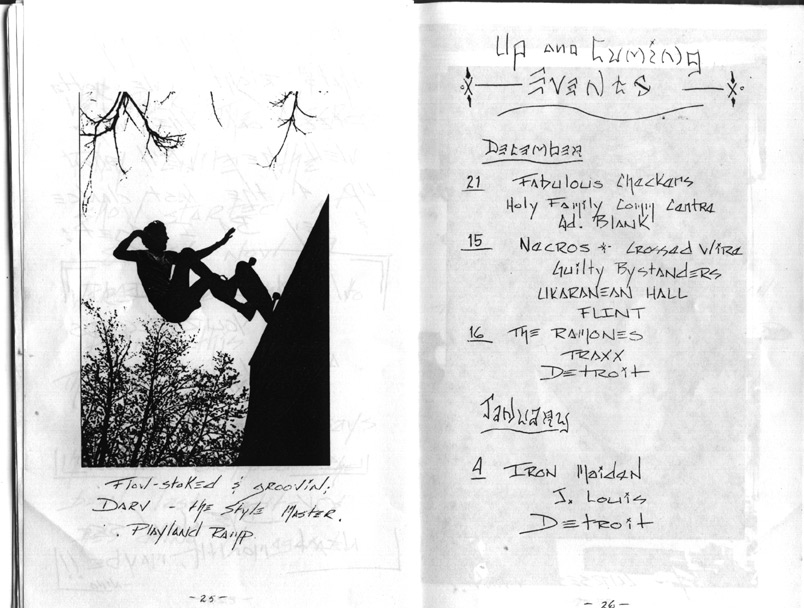 Flow-stoked & groovin;
Darv - the Style Master.
Playland Ramp.
- 25 -
Up and Cuming
Events
December
21 Fabulous Checkers
Holy Family Comm Centre
Ad. Blank
15 Necros + Crossed Wire
Guilty Bystanders
Ukaranean Hall
Flint
16 The Ramones
Traxx
Detroit
January
4 Iron Maiden
J. Louis
Detroit
- 26 -